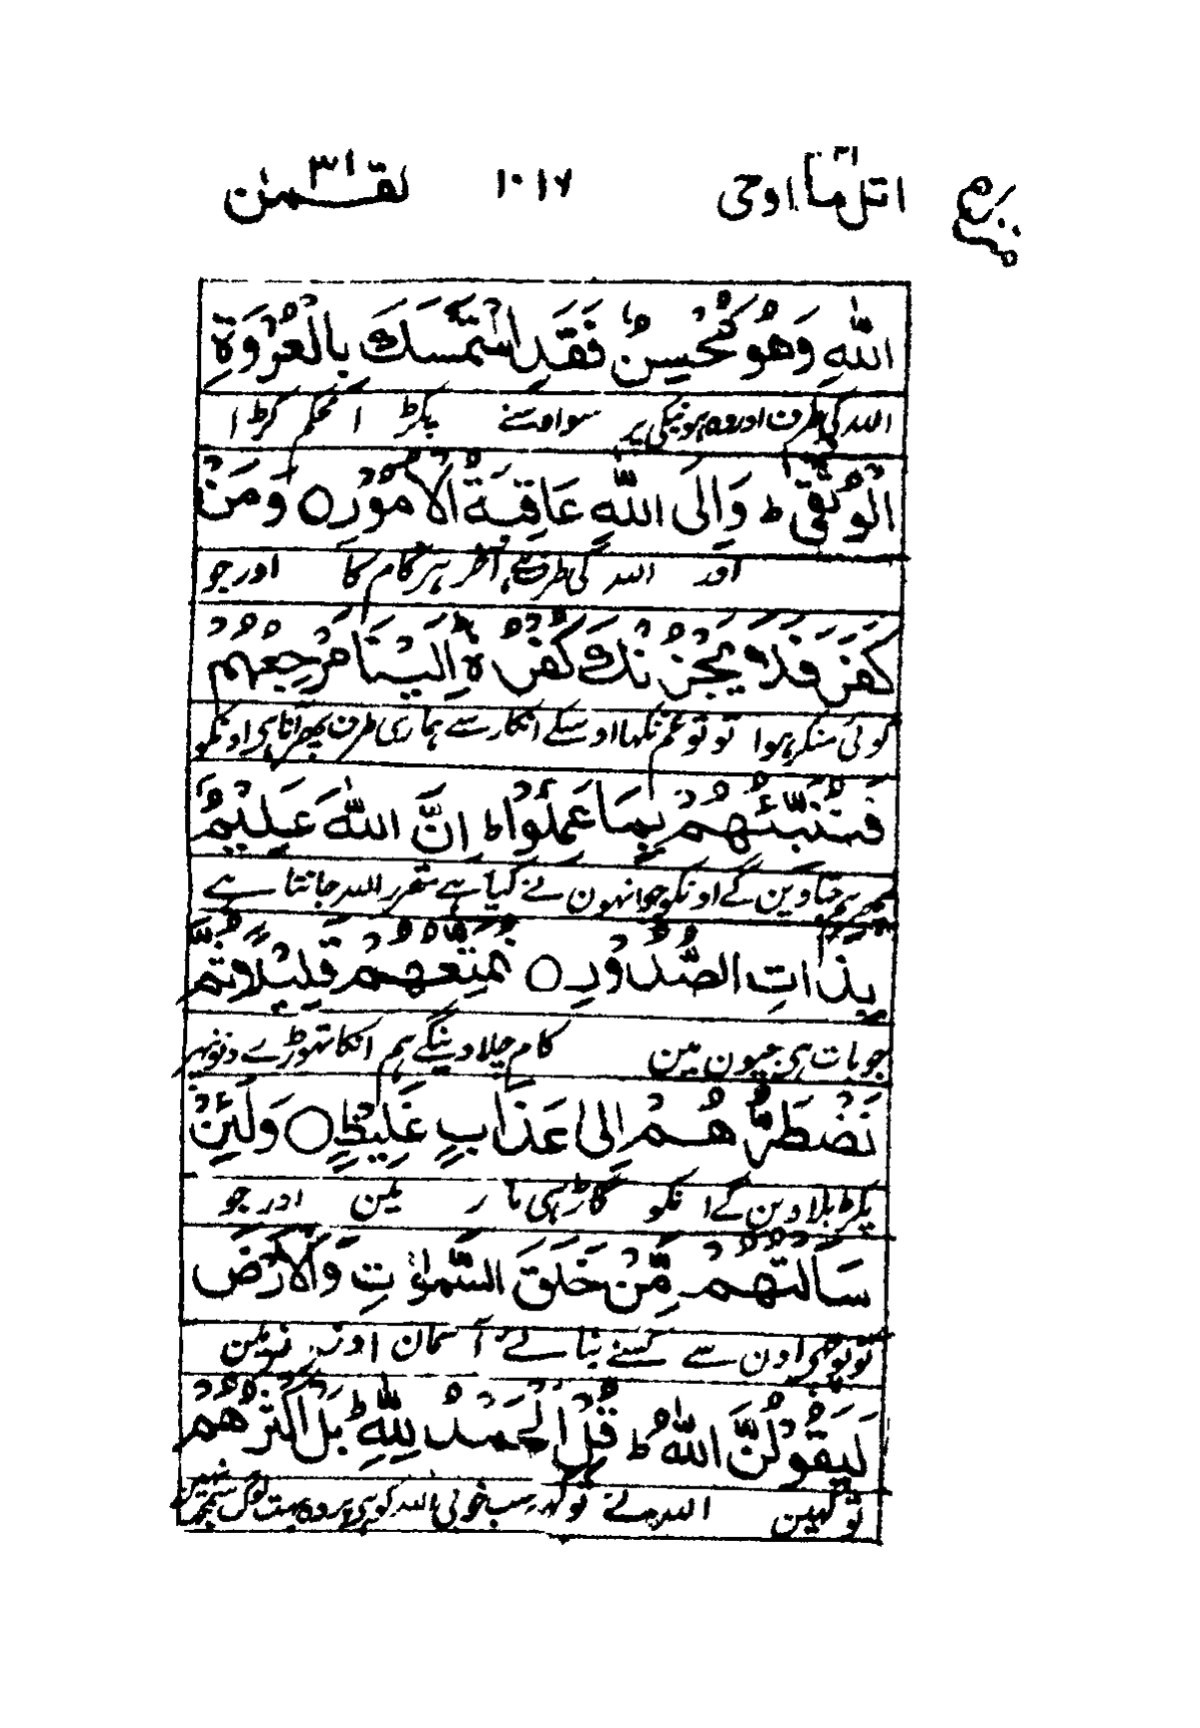 اتل ما اوحی ۲۱ ۱۰۱۷ لقمٰن ۳۱
اللّٰهِ وَهُوَ مُحْسِنٌ فَقَدِ اسْتَمْسَكَ بِالْعُرْوَةِ
اللہ کی طرف اور وہ ہو نیکی پر سو اوسنے پکڑا محکم کڑا
الْوُثْقٰى ؕ وَاِلَى اللّٰهِ عَاقِبَةُ الْاُمُوْرِ ○ وَمَنْ
اور اللہ کی طرف ہے آخر ہر کام کا اور جو
كَفَرَ فَلَا يَحْزُنْكَ كُفْرُهٗ ؕ اِلَيْنَا مَرْجِعُهُمْ
کوئی منکر ہوا تو تو غم نکھا اوسکے انکار سے ہماری طرف پھر آنا ہی اونکو
فَنُنَبِّئُهُمْ بِمَا عَمِلُوْا ؕ اِنَّ اللّٰهَ عَلِيْمٌۢ
پھر ہم جتاوین گے اونکو جو انہون نے کیا ہے مقرر اللہ جانتا ہے
بِذَاتِ الصُّدُوْرِ ○ نُمَتِّعُهُمْ قَلِيْلًا ثُمَّ
جو بات ہی جیون مین کام چلا دینگے ہم انکا تھوڑے دنون پھر
نَضْطَرُّهُمْ اِلٰى عَذَابٍ غَلِيْظٍ ○ وَلَئِنْ
پکڑ بلاوین گے انکو گاڑہی مار مین اور جو
سَاَلْتَهُمْ مَّنْ خَلَقَ السَّمٰوٰتِ وَالْاَرْضَ
تو پوچھی اون سے کسنے بنائے آسمان اور زمین
لَيَقُوْلُنَّ اللّٰهُ ؕ قُلِ الْحَمْدُ لِلّٰهِ ؕ بَلْ اَكْثَرُهُمْ
تو کہین اللہ نے تو کہہ سب خوبی اللہ کو ہی پر وہ بہت لوگ نہین سمجھتے